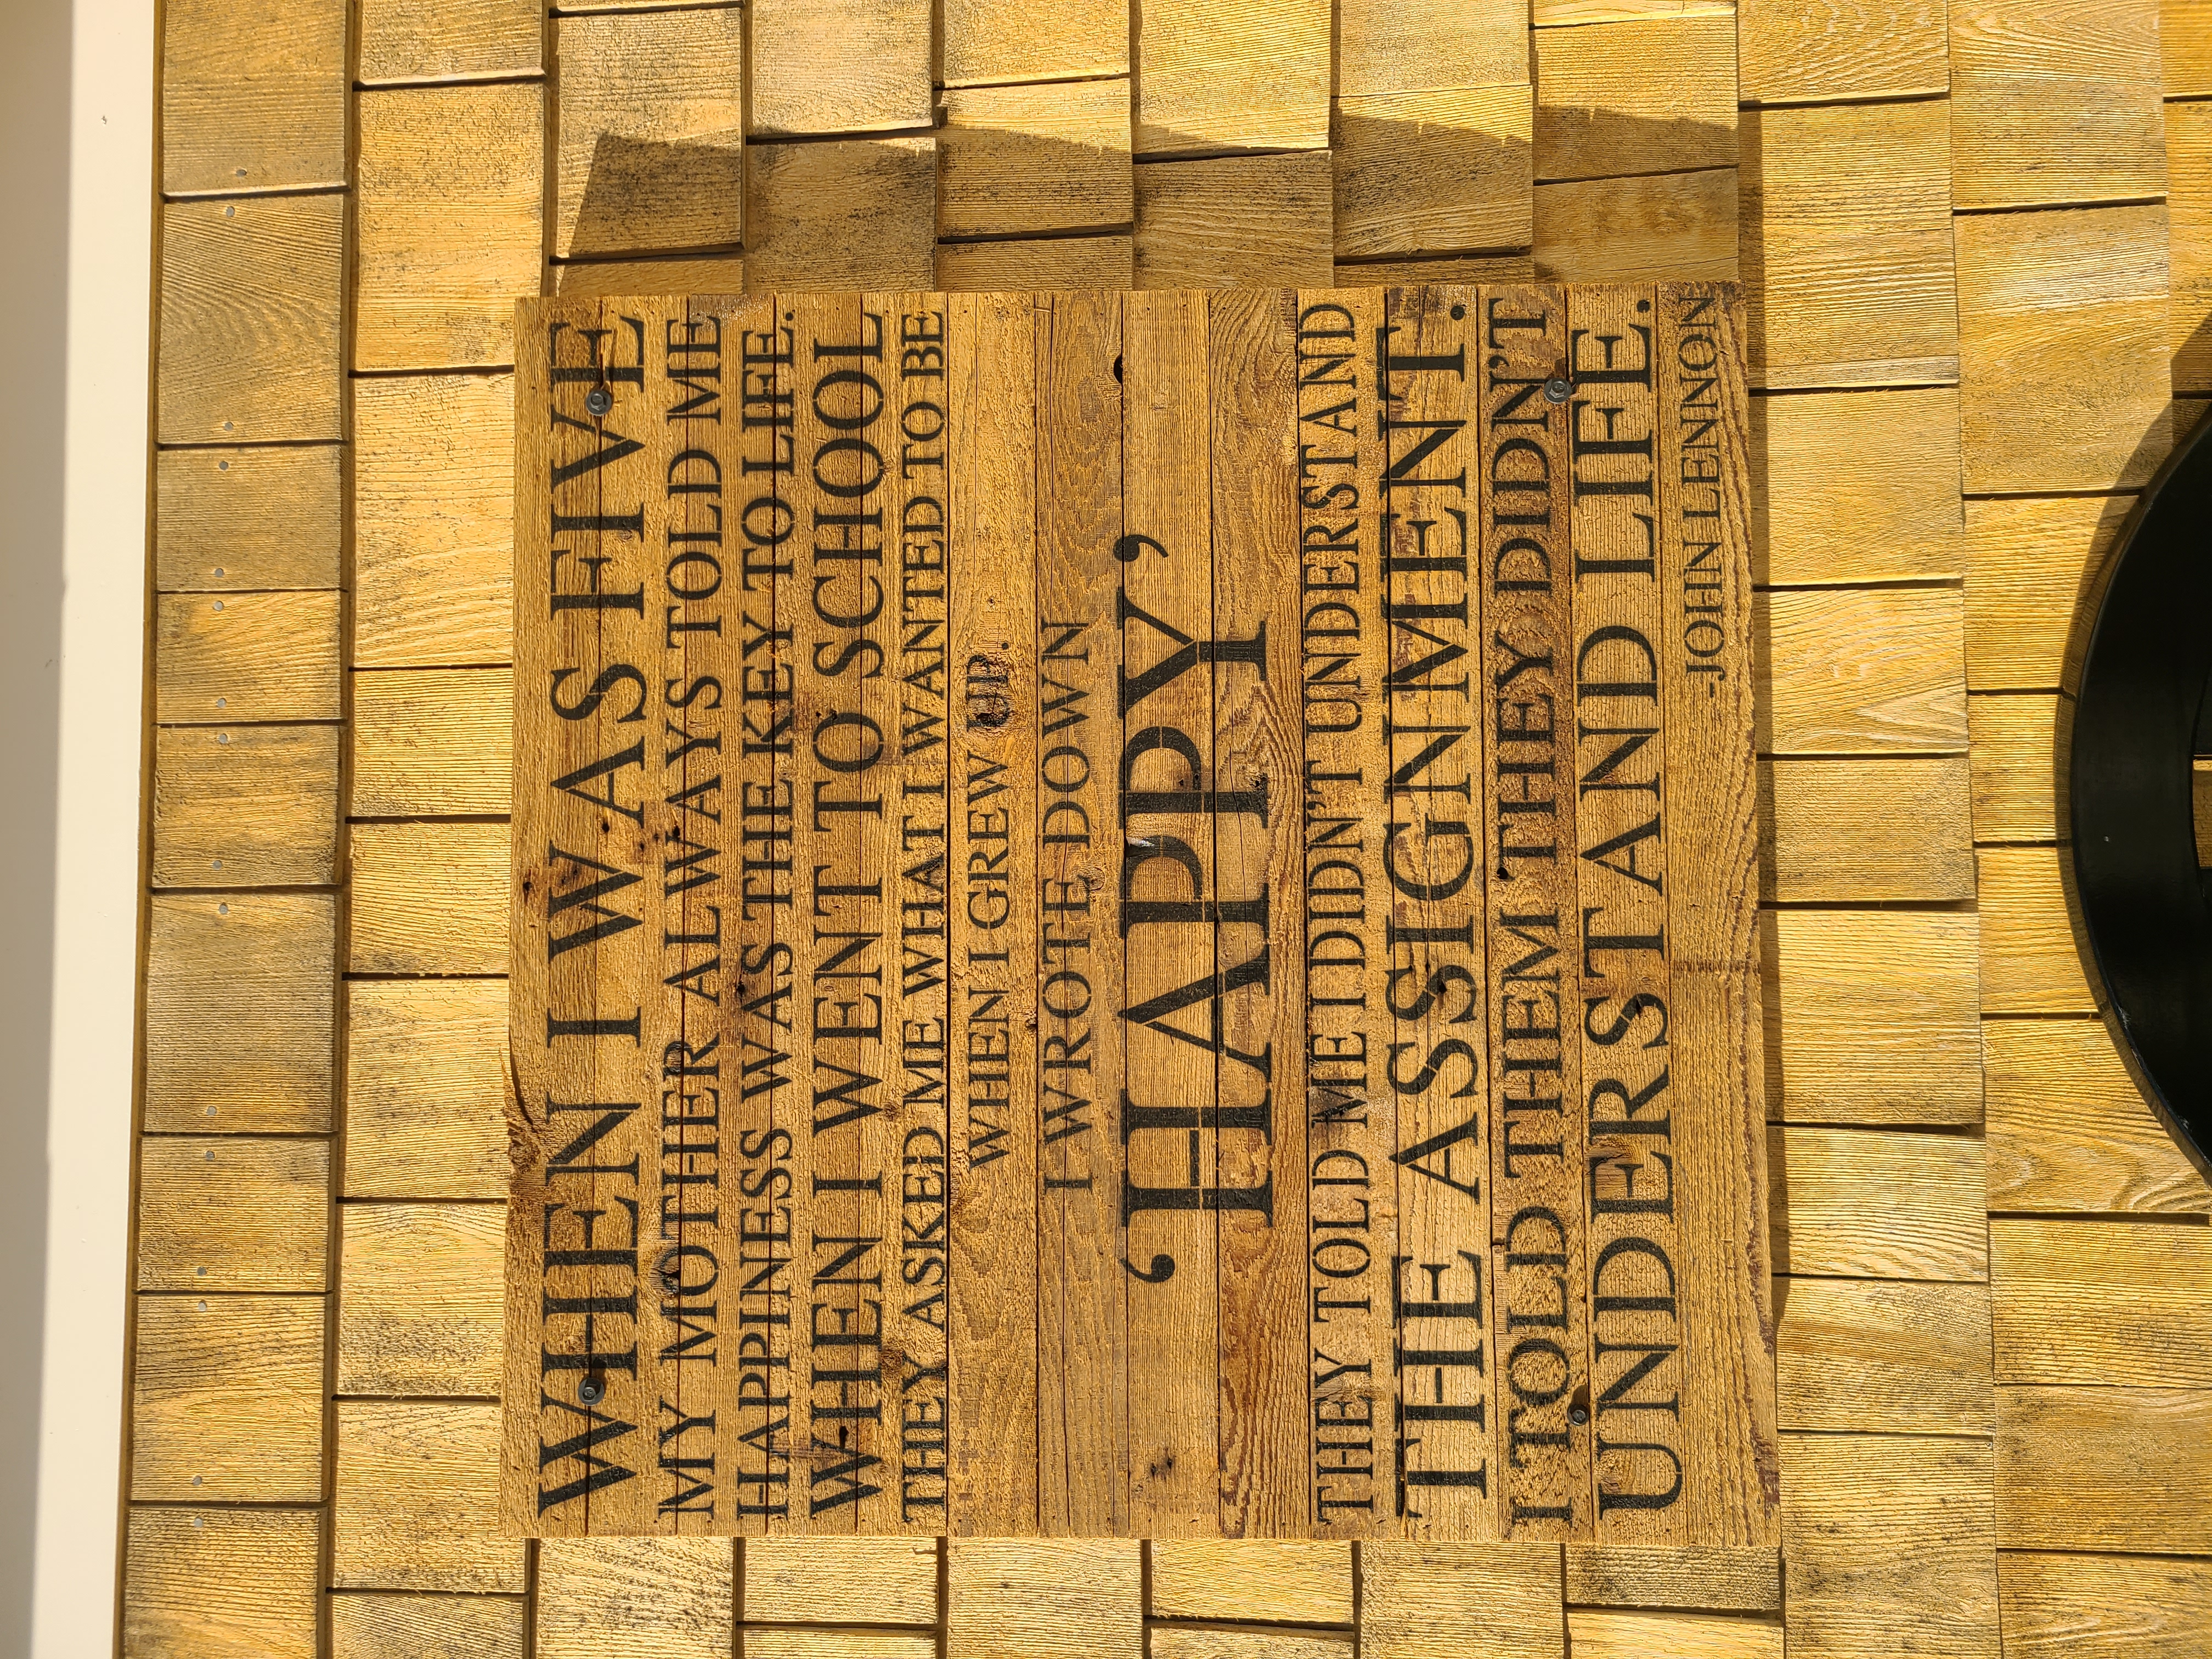 WHEN I WAS FIVE
MY MOTHER ALWAYS TOLD ME
HAPPINESS WAS THE KEY TO LIFE.
WHEN I WENT TO SCHOOL
THEY ASKED ME WHAT I WANTED TO BE
WHEN I GREW UP.
I WROTE DOWN
‘HAPPY’
THEY TOLD ME I DIDN’T UNDERSTAND
THE ASSIGNMENT.
I TOLD THEM THEY DIDN’T
UNDERSTAND LIFE.
-JOHN LENNON